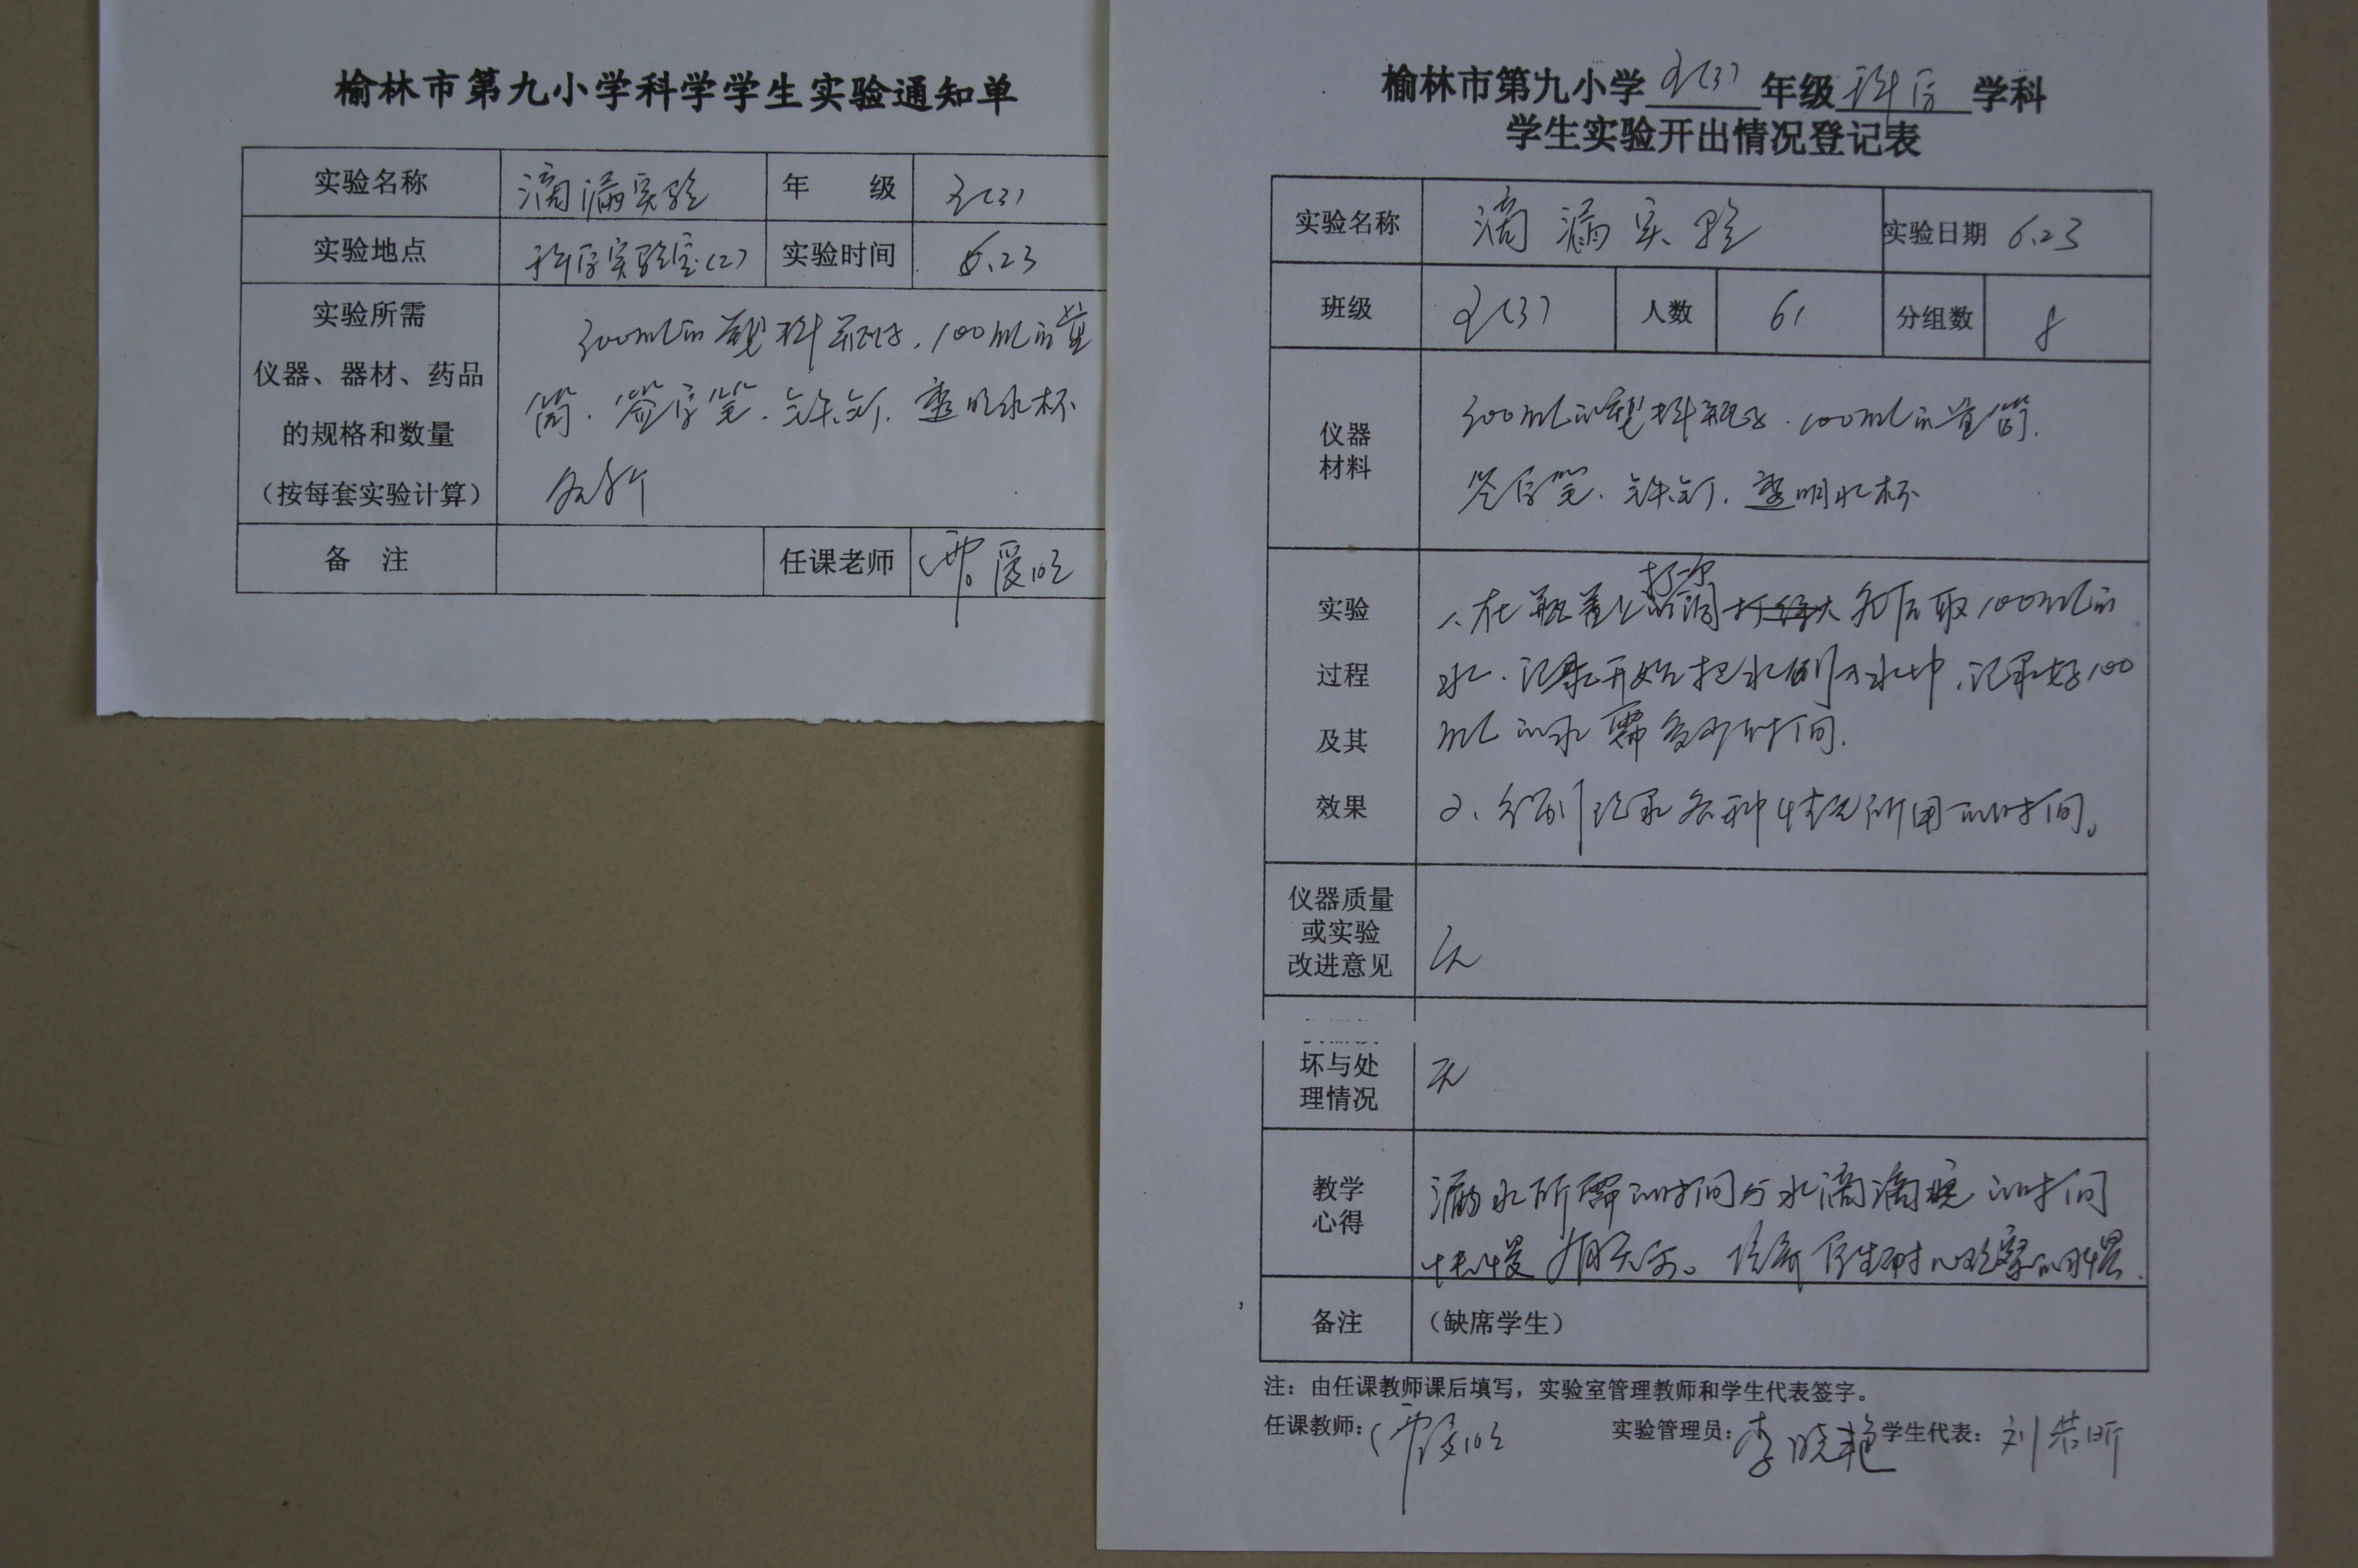 榆林市第九小学科学学生实验通知单
实验名称 滴漏实验 年 级 五(3)
实验地点 科学实验室(2) 实验时间 6.23
实验所需
仪器、器材、药品
的规格和数量
(按每套实验计算)
300mL的塑料瓶子、100mL的量
筒、签字笔、铁钉、透明水杯
各8个
备 注 任课老师 爱
榆林市第九小学 五(3) 年级 科学 学科
学生实验开出情况登记表
实验名称 滴漏实验 实验日期 6.23
班级 五(3) 人数 61 分组数 8
仪器
材料
300mL的塑料瓶子、100mL的量筒、
签字笔、铁钉、透明水杯
实验
过程
及其
效果
1、在瓶盖上 孔后取100mL的
水、记录开始把水倒入水中,记录好100
mL的水需多少时间.
2、分别记录各种情况所用的时间。
仪器质量
或实验
改进意见
无
坏与处
理情况
无
教学
心得
漏水所需的时间与水滴滴 的时间
快慢有关系。培养学生耐心观察的习惯.
备注 (缺席学生)
注:由任课教师课后填写,实验室管理教师和学生代表签字。
任课教师: 爱 实验管理员:李晓艳 学生代表:刘 昕